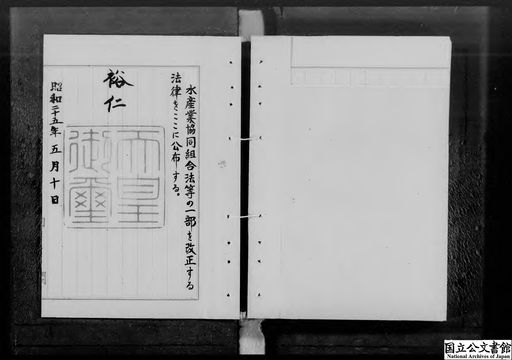 水産業協同組合法等の一部を改正する
法律をここに公布する。
裕仁
天皇
御璽
昭和二十五年五月十日
国立公文書館
National Archives of Japan